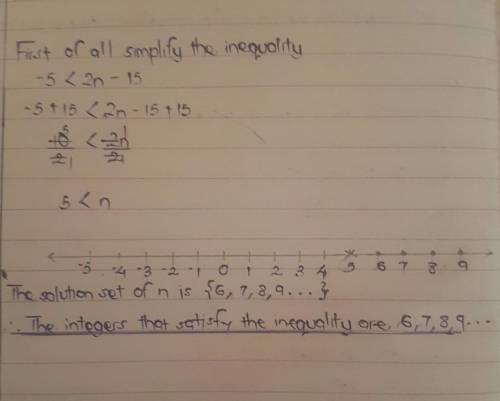 First of all simplify the inequality
-5 < 2n - 15
-5 + 15 < 2n - 15 + 15
10/2 < 2n/2
5 1 1 1
5 < n
-5 -4 -3 -2 -1 0 1 2 3 4 5 6 7 8 9
The solution set of n is {6, 7, 8, 9...}
∴ The integers that satisfy the inequality are, 6, 7, 8, 9...